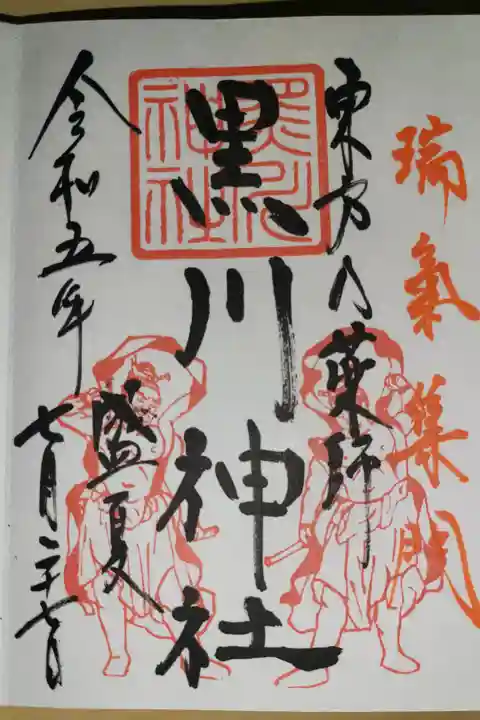 瑞氣集門
東方の薬師
黒川神社
盛夏
令和五年
七月二十七日